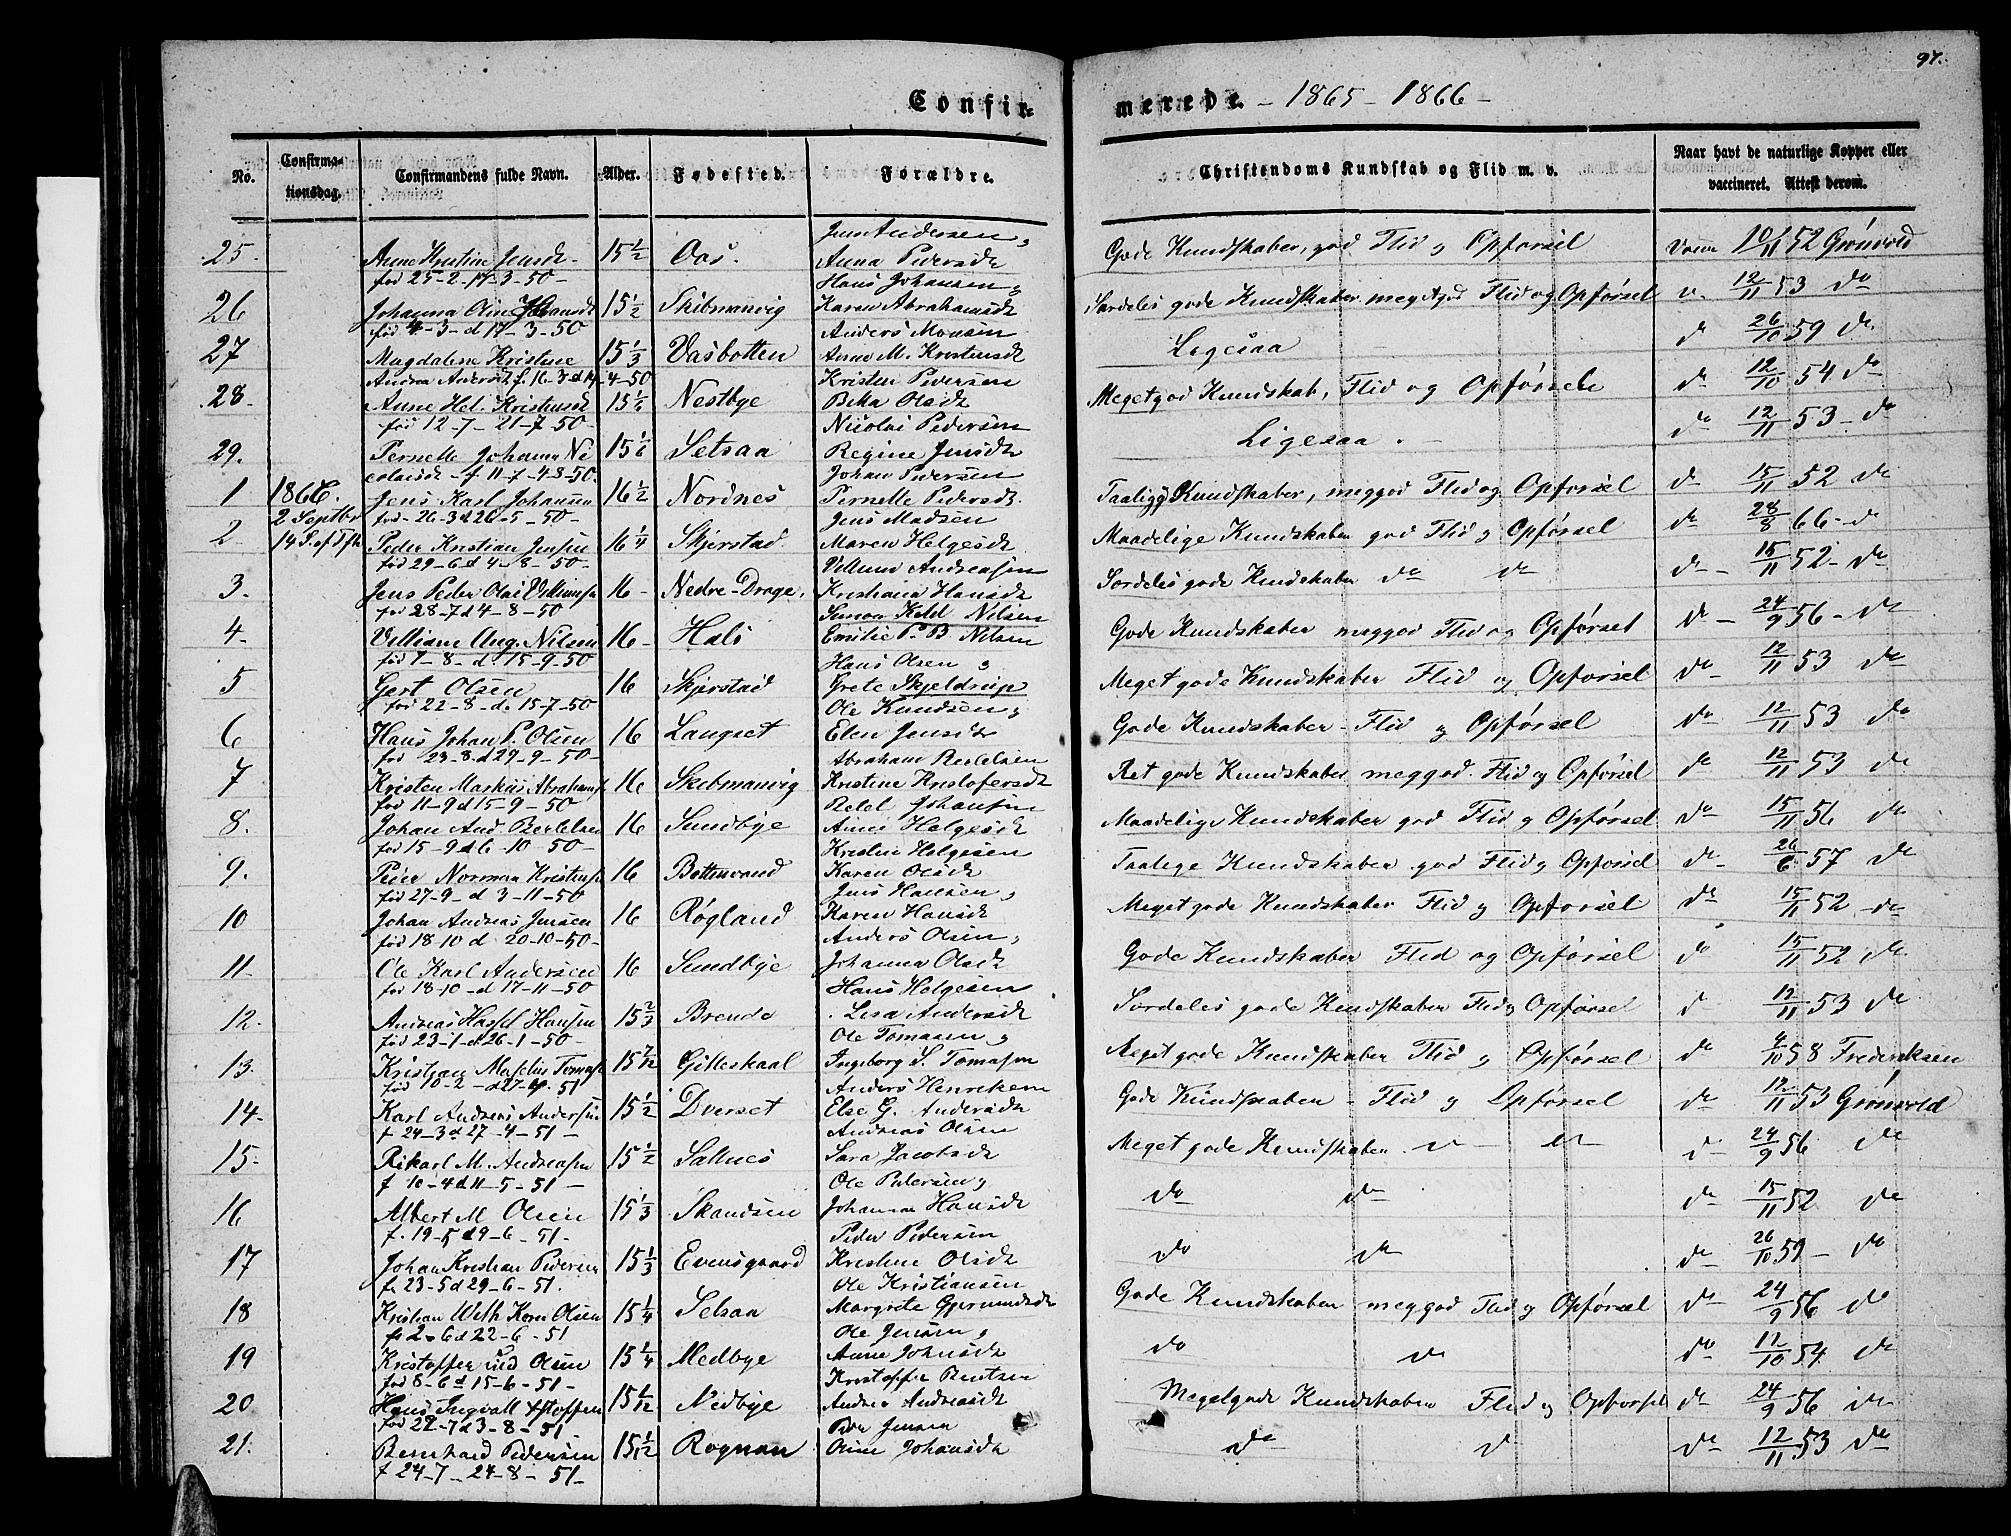 97.
Confirmerede. - 1865 - 1866 -
No.
Confirmationsdag.
Confirmandens fulde Navn.
Alder.
Fødested.
Forældre.
Christendoms Kundskab og Flid m. v.
Naar havt de naturlige Kopper eller vaccineret. Attest derom.
25 Anne Kristine Jensdr 15 1/2 Oas. Jens Andersen, Gode Kundskaber, god Flid og Opførsel 10/11 52 Grønvold
fød 25-2- 3-50- Anna Pedersdr
26 Johanna Oline 15 1/2 Skibmanvig Hans Johansen, Særdeles gode Kundskaber, meget god Flid og Opførsel v. 12/11 53 do
fød 4-3-d 17-3-50 Karen Abrahamsdr
27 Magdalene Kristine 15 1/3 Vasbotten Anders Monsen Ligesaa do 26/10 59 do
Andrea Andersdr f. 16-3-d -4-50 Anne M. Kristensdr
28 Anne Hel. Kristensdr 15 1/6 Nestbye Kristen Pedersen Meget god Kundskab, Flid og Opførsel do 12/10 54 do
fød 12-7- 21-7-50- Olsdr
29. Pernelle Johanna Ni 15 1/6 Setsaa Nicolai Pedersen Ligesaa do 12/11 53 - do
colaisdr - f 11-7-4-8-50. Regine Jensdr
1 1866. Jens Karl Johansen 16 1/2 Nordnes Johan Pedersen Taalige Kundskaber, meg god Flid og Opførsel do 15/11 52 do
2 Septbr fød - 26-3 d 26-5-50- Pernelle Pedersdr
2 14 S. ef Tfh Peder Kristian Jensen 16 1/4 Skjerstad Jens Madsen Maadelige Kundskaber god Flid og Opførsel do 28/8 66 - do
fød 29-6 d 4-8-50- Maren Helgesdr
3. Jens Peder Olai 16 - Nedre-Drage, Andreassen Særdeles gode Kundskaber do do do - 15/11 52 - do
fød 28-7 d 4-8-50 Kristiana Hansdr
4 Villiam Aug. Nilsen 16 - Hals Simon Nilsen Gode Kundskaber meg god Flid og Opførsel do - 24/9 56 - do
fød 7-8-d. 15-9-50 Emilie P. B Nilsen
5 Gert Olsen 16 Skjerstad Hans Olsen, Meget gode Kundskaber Flid og Opførsel do 12/11 53 do
fød 22-8-d. 15-7-50 Grete Skjeldrup
6 Hans Johan P. Olsen 16 Langset Ole Knudsen, Gode Kundskaber - Flid og Opførsel do 12/11 53 do
fød 23-8 d 29-9-50- Elen Jensdr
7 Kristen Markus Abrahams 16 Skibmanvig Abraham Bertelsen Ret gode Kundskaber meg god. Flid og Opførsel do 12/11 53 do
fød 11-9 d 15-9-50 Kristine Kristofersdr
8. Johan And. Bertelsen 16 Sundbye Johansen Maadelige Kundskaber god Flid og Opførsel do 15/11 56 do
fød 15-9 d 6-10-50- Anne Helgesdr
9. Peder Norman Kristens 16 Bottenvand Kristen Helgesen Taalige Kundskaber god Flid og Opførsel do 26/6 57 do
fød 27-9-d 3-11-50 Karen Olsdr
10 Johan Andreas Jensen 16 Røgland Jens Hansen, Meget gode Kundskaber Flid og Opførsel do 15/11 52 do
fød 18-10 d 20-10-50- Karen Hansdr
11. Ole Karl Andersen 16 Sundbye Anders Olsen, Gode Kundskaber Flid og Opførsel do 15/11 52 do
fød 18-10-d 17-11-50 Johanna Olsdr
12. Andreas Hassel Hansen 15 2/3 Brende Hans Helgesen Særdeles gode Kundskaber Flid og Opførsel do 12/11 53 do
fød 23-1-d 26-1-50- Lisa Andersdr
13. Kristian Tomas 15 7/12 Gilleskaal Ole Tomasen, Meget gode Kundskaber Flid og Opførsel do 4/10 58 Frederiksen
fød 10-2- d 27-4. 51 Ingeborg S. Tomasen
14. Karl Andreas Andersen 15 1/2 Dverset Anders Henreksen Gode Kundskaber - Flid og Opførsel do 12/11 53 Grønvold
f 24-3 d 27-4-51- Else G. Andersdr
15- Rikarl M. Andreasen 15 1/2 Saltnes Andreas Olsen Meget gode Kundskaber do do do 24/9 56 do
f 10-4 d 11-5-51- Sara Jacobsdr
16 Albert M Olsen 15 1/3 Skandsen Ole Pedersen, do do do 15/11 52 do
f. 19-5 d 9-6-51- Johanna Hansdr
17 Johan Kristian Pedersen 15 1/3 Evensgaard Peder Pedersen do do do 26/10 59 - do
f. 23-5 d 29-6-51. Kristine Olsdr
18 Kristian Olsen 15 1/4 Setsaa Ole Kristiansen Gode Kundskaber meg god Flid og Opførsel do 24/9 56 do
f. 2-6 d 22-6-51 Margrete Gjermundsdr
19 Kristoffer Olsen 15 1/4 Medbye Ole Jensen, do do do 12/10 54 do
fød 8-6 d 15-6-51- Anne Johnsdr
20 Hans Ingvall 15 1/12 Nedbye Kristoffer Bentsen Meget gode Kundskaber Flid og Opførsel do 24/9 56 do
fød 22-7 d 3-8-51- Andrea Andreasdr
21. Bernhard Pedersen 15 1/12 Rognan Peder Jensen do do do 12/11 53 do
f 24-7-24-8-51- Oline Johansdr